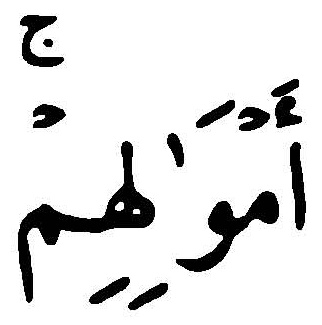 أَمْوَٰلِهِمْ ۚ